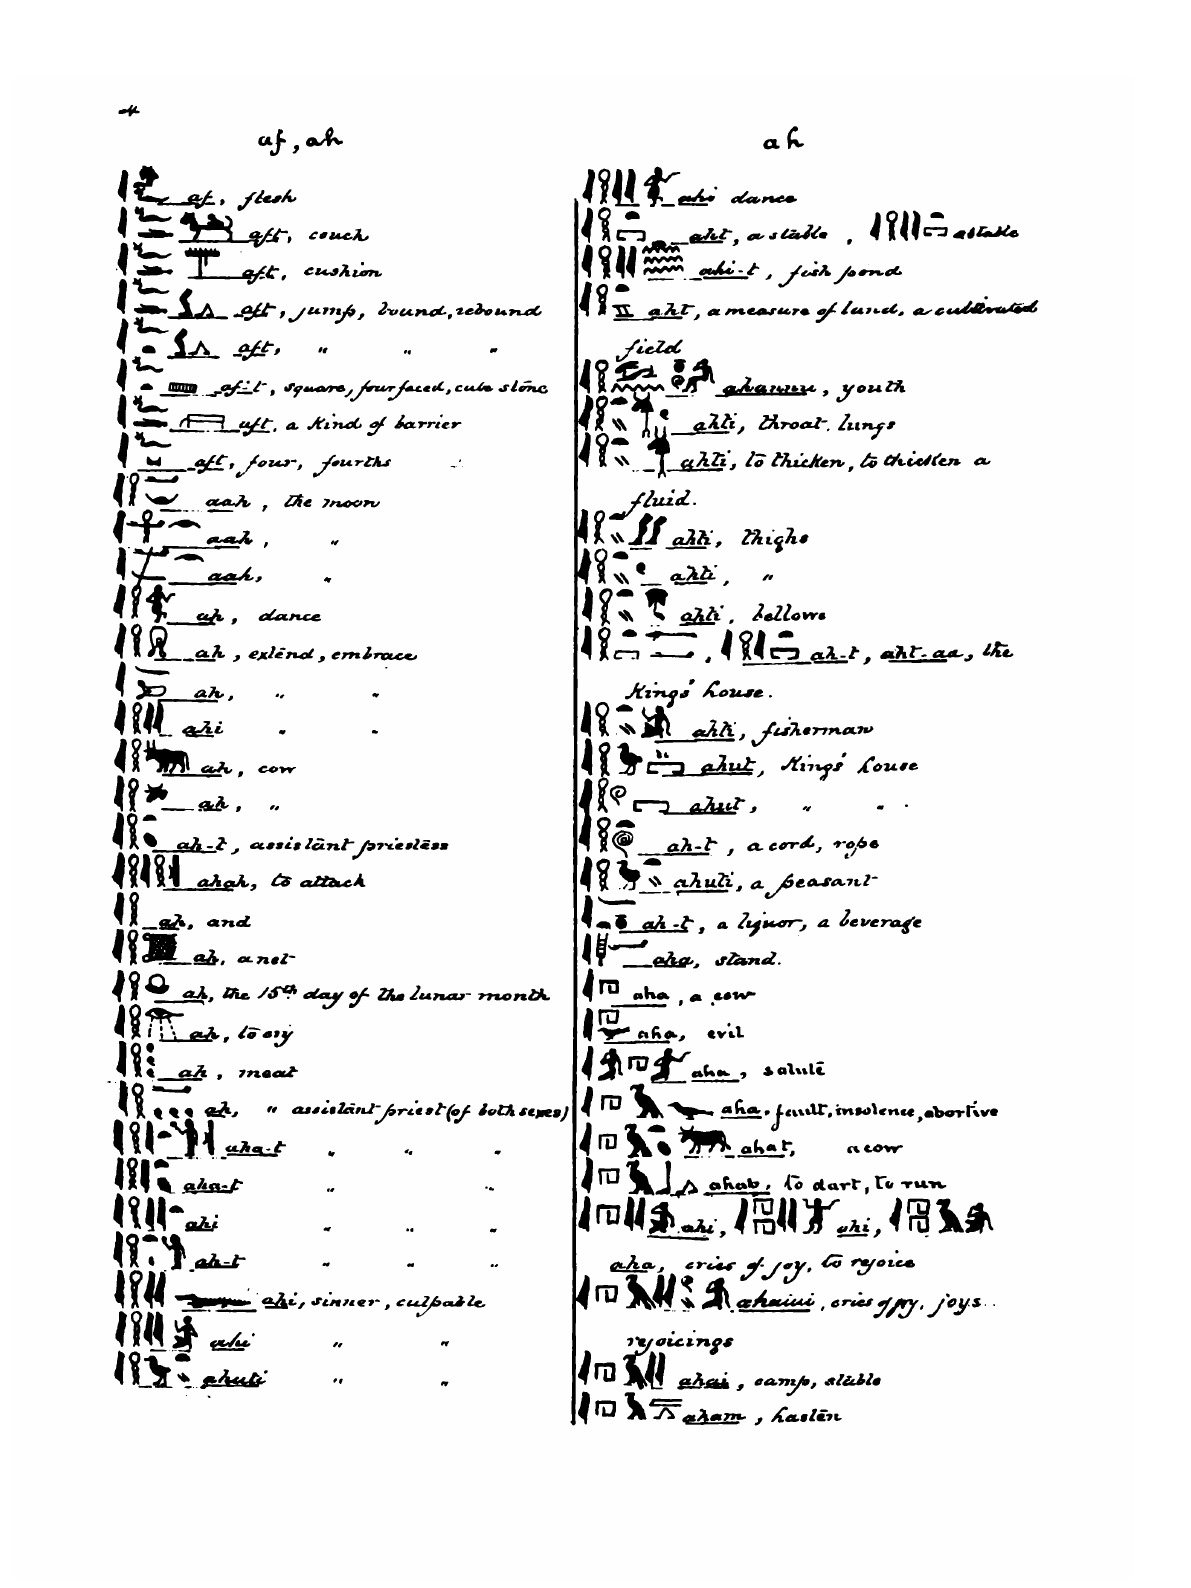 4
af, ah
af, flesh
aft, couch
aft, cushion
aft, jump, bound, rebound
aft, " " "
af-t, square, four faced, cube stone
aft, a kind of barrier
aft, four, fourths
aah, the moon
aah, "
aah, "
ah, dance
ah, extend, embrace
ah, " "
ahi " "
ah, cow
ah, "
ah-t, assistant priestess
ahah, to attack
ah, and
ah, a net
ah, the 15th day of the lunar month
ah, to cry
ah, meat
ah, " assistant priest (of both sexes)
aha-t " " "
aha-t " "
ahi " " "
ah-t " " "
ahi, sinner, culpable
ahi " "
ahuti " "
ah
ahi dance
aht, a stable, a stable
ahi-t, fish pond
aht, a measure of land, a cultivated
field
ahannu, youth
ahti, throat, lungs
ahti, to thicken, to thicken a
fluid.
ahti, thighs
ahti, "
ahti, bellows
ah-t, aht-aa, the
Kings' house.
ahti, fisherman
ahut, Kings' house
ahut, " "
ah-t, a cord, rope
ahuti, a peasant
ah-t, a liquor, a beverage
aha, stand.
aha, a cow
aha, evil
aha, salute
aha, fault, insolence, abortive
ahat, a cow
ahab, to dart, to run
ahi, ahi,
aha, cries of joy, to rejoice
ahaiui, cries of joy, joys..
rejoicings
ahai, camp, stable
aham, hasten